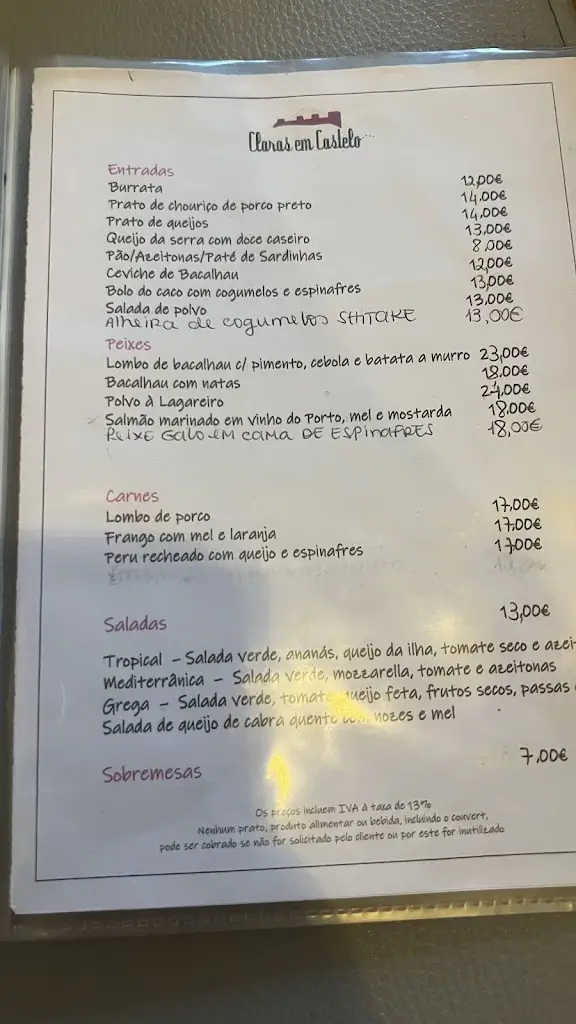 Claras em Castelo...
Entradas
Burrata 12,00€
Prato de chouriço de porco preto 14,00€
Prato de queijos 14,00€
Queijo da serra com doce caseiro 13,00€
Pão/Azeitonas/Paté de Sardinhas 8,00€
Ceviche de Bacalhau 12,00€
Bolo do caco com cogumelos e espinafres 13,00€
Salada de polvo 13,00€
Alheira de cogumelos SHITAKE 13,00€
Peixes
Lombo de bacalhau c/ pimento, cebola e batata a murro 23,00€
Bacalhau com natas 18,00€
Polvo à Lagareiro 24,00€
Salmão marinado em vinho do Porto, mel e mostarda 18,00€
PEIXE GALO EM CAMA DE ESPINAFRES 18,00€
Carnes
Lombo de porco 17,00€
Frango com mel e laranja 17,00€
Peru recheado com queijo e espinafres 17,00€
Saladas 13,00€
Tropical – Salada verde, ananás, queijo da ilha, tomate seco e azei
Mediterrânica – Salada verde, mozzarella, tomate e azeitonas
Grega – Salada verde, tomate, queijo feta, frutos secos, passas
Salada de queijo de cabra quente com nozes e mel
Sobremesas 7,00€
Os preços incluem IVA à taxa de 13%
Nenhum prato, produto alimentar ou bebida, incluindo o couvert,
pode ser cobrado se não for solicitado pelo cliente ou por este for inutilizado